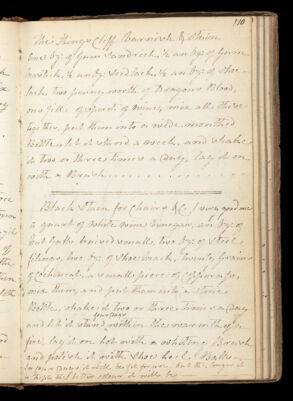 110
This Hings Cliff Varnish & Stain
One oz: of Gum Sandrich, ½ an oz: of Gum
Mastick, ½ an oz Seed lack, ½ an oz: of Shoe
lack, two penny worth of Dragons Blood,
one Jill of Spirit of Wine, mix all these
together, put them into a wide mouthed
Bottle, let it stand a week, and shake
it two or three times a Day, lay it on
with a Brush
Black Stain for Chairs &c. / very good one
a quart of white wine Vinegar, an oz: of
nut galls bruised small, two oz: of Steel
filings, two oz: of Shoemack, twenty Grains
of Cochineal, a small piece of Copperas,
mix them, and put them into a stone
Bottle, shake it two or three times a Day
and let it stand fourteen days within the warmth of a
fire, lay it on hot with a whitening Brush
and polish it with Shoe heel Balls
in four Days it will be fit for use, but the longer it
is kept the better colour it will be